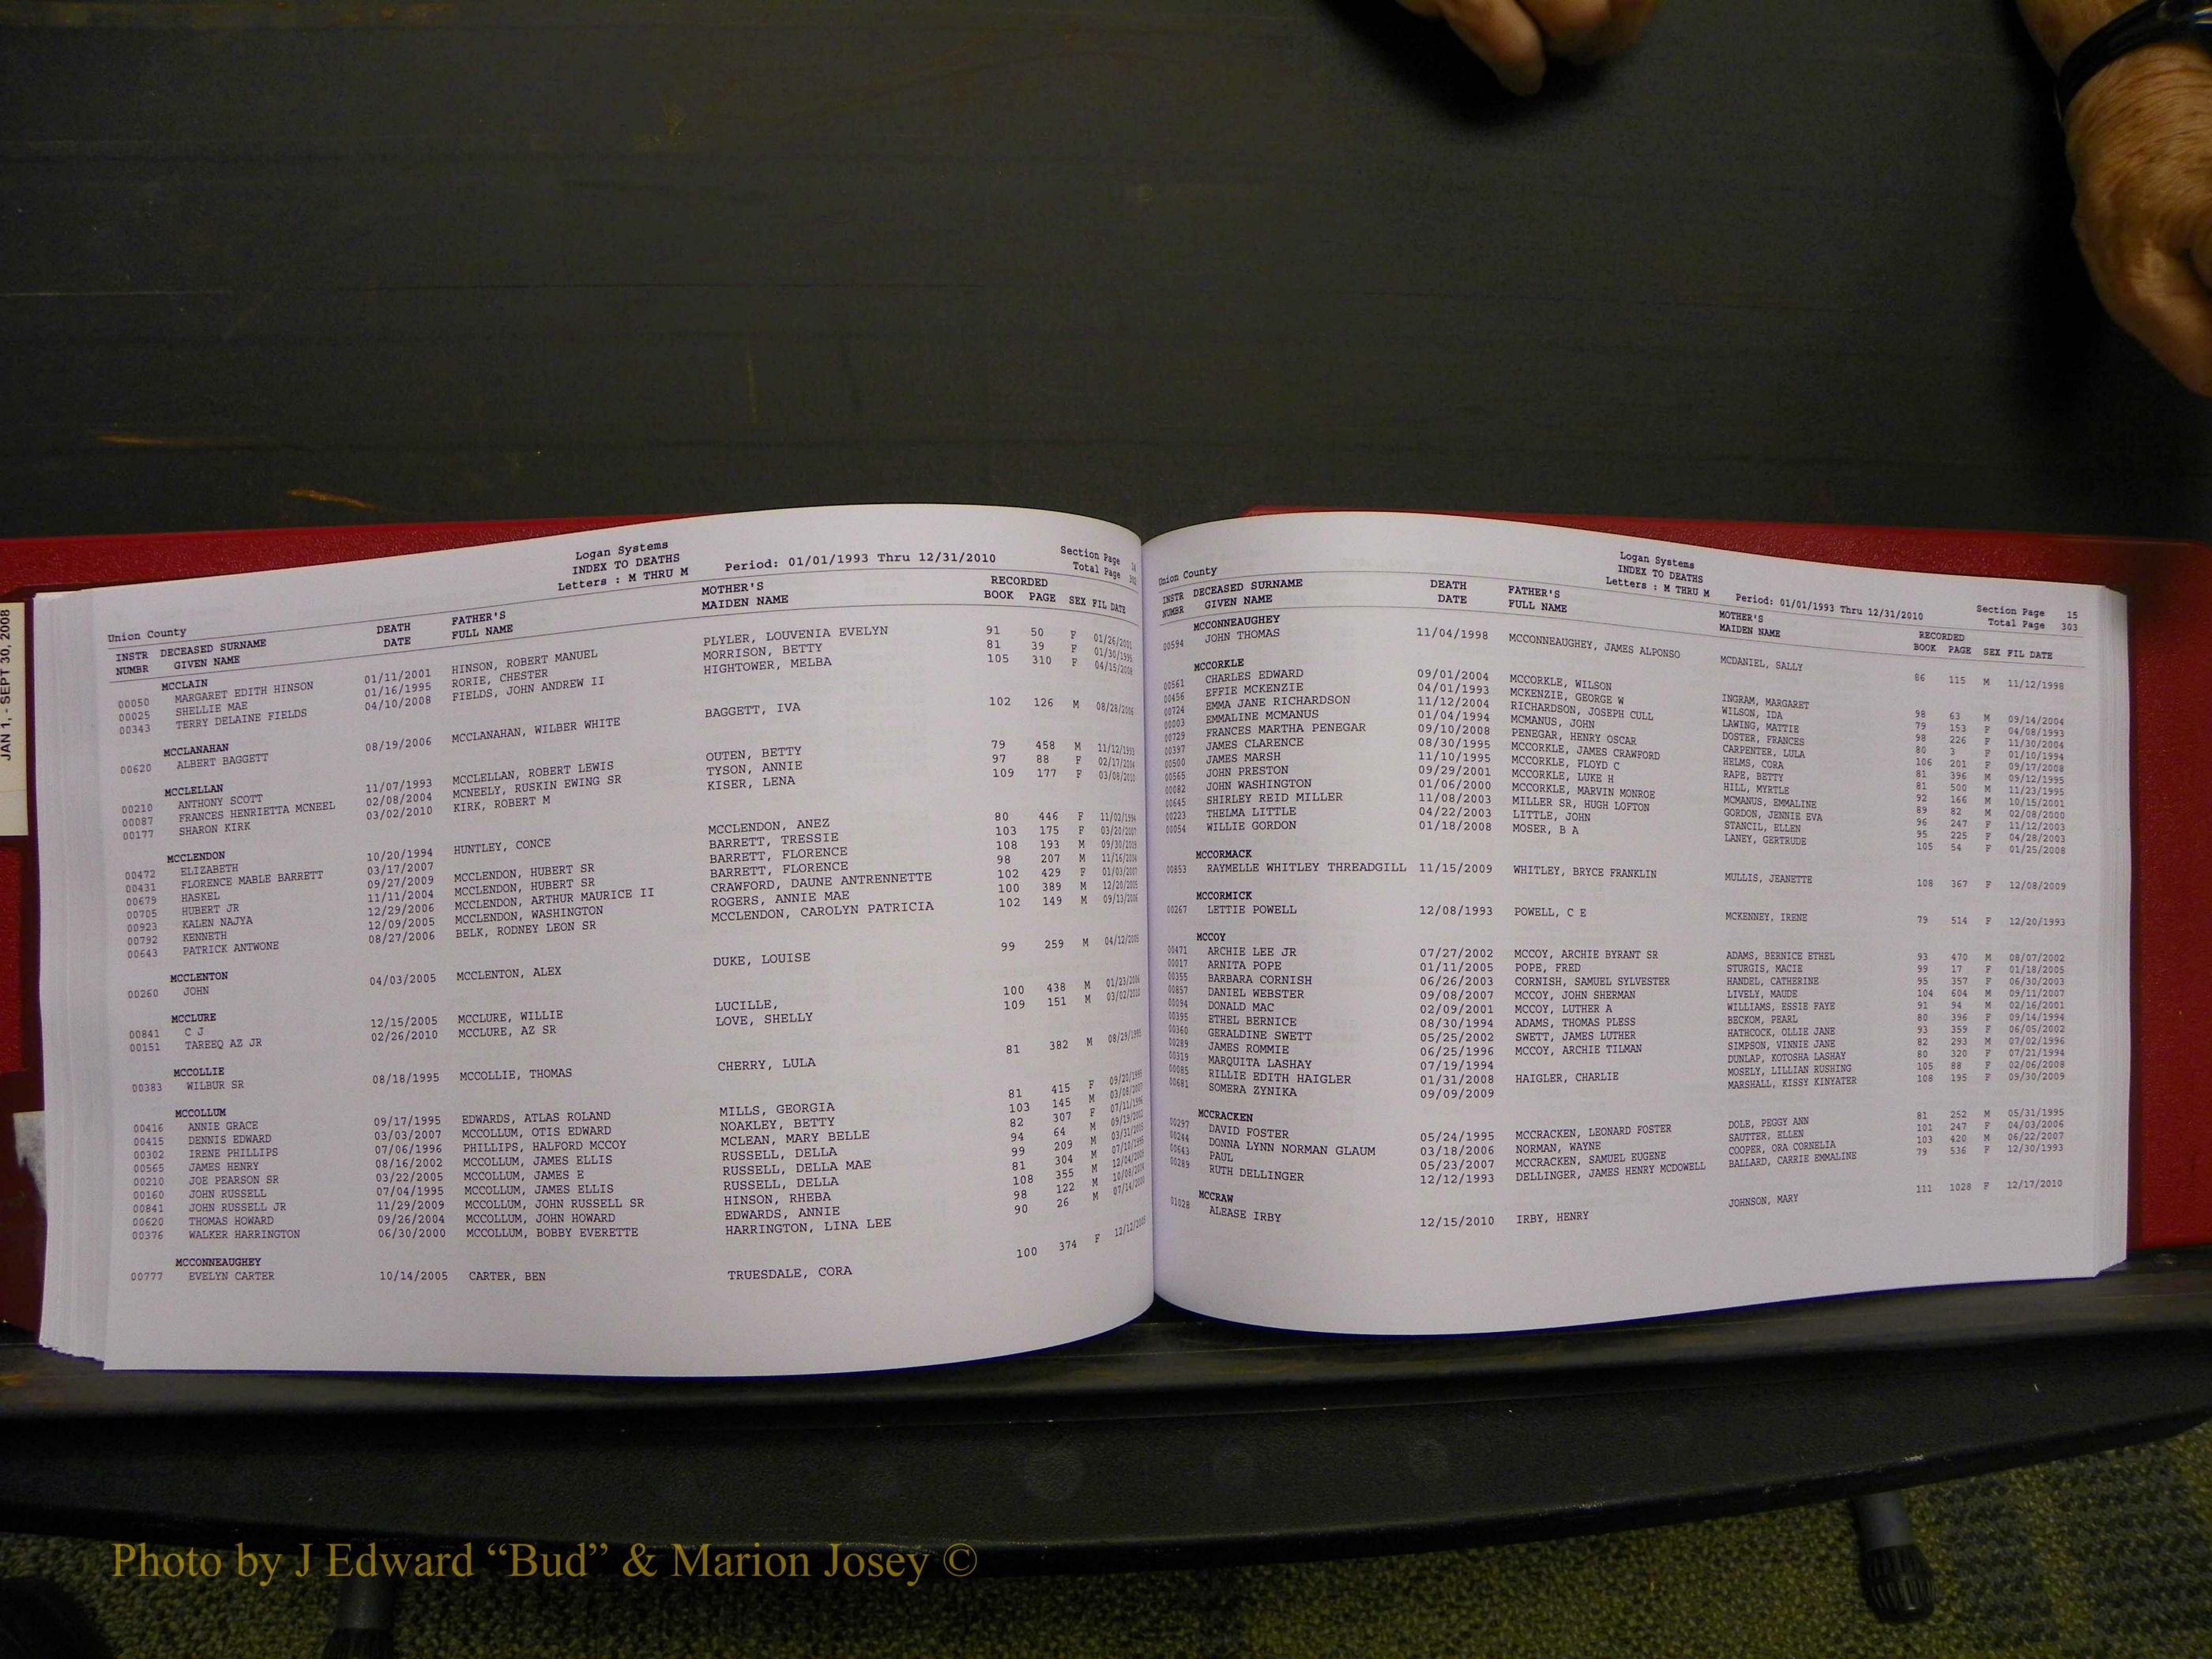 JAN 1, - SEPT 30, 2008
Logan Systems
INDEX TO DEATHS
Letters : M THRU M
Period: 01/01/1993 Thru 12/31/2010
Section Page 14
Total Page 302
Union County
INSTR DECEASED SURNAME DEATH FATHER'S MOTHER'S RECORDED
NUMBR GIVEN NAME DATE FULL NAME MAIDEN NAME BOOK PAGE SEX FIL DATE
MCCLAIN
00050 MARGARET EDITH HINSON 01/11/2001 HINSON, ROBERT MANUEL PLYLER, LOUVENIA EVELYN 91 50 F 01/26/2001
00025 SHELLIE MAE 01/16/1995 RORIE, CHESTER MORRISON, BETTY 81 39 F 01/30/1995
00343 TERRY DELAINE FIELDS 04/10/2008 FIELDS, JOHN ANDREW II HIGHTOWER, MELBA 105 310 F 04/15/2008
MCCLANAHAN
00620 ALBERT BAGGETT 08/19/2006 MCCLANAHAN, WILBER WHITE BAGGETT, IVA 102 126 M 08/28/2006
MCCLELLAN
00210 ANTHONY SCOTT 11/07/1993 MCCLELLAN, ROBERT LEWIS OUTEN, BETTY 79 458 M 11/12/1993
00087 FRANCES HENRIETTA MCNEEL 02/08/2004 MCNEELY, RUSKIN EWING SR TYSON, ANNIE 97 88 F 02/17/2004
00177 SHARON KIRK 03/02/2010 KIRK, ROBERT M KISER, LENA 109 177 F 03/08/2010
MCCLENDON
00472 ELIZABETH 10/20/1994 HUNTLEY, CONCE MCCLENDON, ANEZ 80 446 F 11/02/1994
00431 FLORENCE MABLE BARRETT 03/17/2007 BARRETT, TRESSIE 103 175 F 03/20/2007
00679 HASKEL 09/27/2009 MCCLENDON, HUBERT SR BARRETT, FLORENCE 108 193 M 09/30/2009
00705 HUBERT JR 11/11/2004 MCCLENDON, HUBERT SR BARRETT, FLORENCE 98 207 M 11/16/2004
00923 KALEN NAJYA 12/29/2006 MCCLENDON, ARTHUR MAURICE II CRAWFORD, DAUNE ANTRENNETTE 102 429 F 01/03/2007
00792 KENNETH 12/09/2005 MCCLENDON, WASHINGTON ROGERS, ANNIE MAE 100 389 M 12/20/2005
00643 PATRICK ANTWONE 08/27/2006 BELK, RODNEY LEON SR MCCLENDON, CAROLYN PATRICIA 102 149 M 09/13/2006
MCCLENTON
00260 JOHN 04/03/2005 MCCLENTON, ALEX DUKE, LOUISE 99 259 M 04/12/2005
MCCLURE
00841 C J 12/15/2005 MCCLURE, WILLIE LUCILLE, 100 438 M 01/23/2006
00151 TAREEQ AZ JR 02/26/2010 MCCLURE, AZ SR LOVE, SHELLY 109 151 M 03/02/2010
MCCOLLIE
00383 WILBUR SR 08/18/1995 MCCOLLIE, THOMAS CHERRY, LULA 81 382 M 08/29/1995
MCCOLLUM
00416 ANNIE GRACE 09/17/1995 EDWARDS, ATLAS ROLAND MILLS, GEORGIA 81 415 F 09/20/1995
00415 DENNIS EDWARD 03/03/2007 MCCOLLUM, OTIS EDWARD NOAKLEY, BETTY 103 145 M 03/08/2007
00302 IRENE PHILLIPS 07/06/1996 PHILLIPS, HALFORD MCCOY MCLEAN, MARY BELLE 82 307 F 07/11/1996
00565 JAMES HENRY 08/16/2002 MCCOLLUM, JAMES ELLIS RUSSELL, DELLA 94 64 M 09/19/2002
00210 JOE PEARSON SR 03/22/2005 MCCOLLUM, JAMES E RUSSELL, DELLA MAE 99 209 M 03/31/2005
00160 JOHN RUSSELL 07/04/1995 MCCOLLUM, JAMES ELLIS RUSSELL, DELLA 81 304 M 07/10/1995
00841 JOHN RUSSELL JR 11/29/2009 MCCOLLUM, JOHN RUSSELL SR HINSON, RHEBA 108 355 M 12/04/2009
00620 THOMAS HOWARD 09/26/2004 MCCOLLUM, JOHN HOWARD EDWARDS, ANNIE 98 122 M 10/08/2004
00376 WALKER HARRINGTON 06/30/2000 MCCOLLUM, BOBBY EVERETTE HARRINGTON, LINA LEE 90 26 M 07/14/2000
MCCONNEAUGHEY
00777 EVELYN CARTER 10/14/2005 CARTER, BEN TRUESDALE, CORA 100 374 F 12/12/2005
Logan Systems
INDEX TO DEATHS
Letters : M THRU M
Period: 01/01/1993 Thru 12/31/2010
Section Page 15
Total Page 303
Union County
INSTR DECEASED SURNAME DEATH FATHER'S MOTHER'S RECORDED
NUMBR GIVEN NAME DATE FULL NAME MAIDEN NAME BOOK PAGE SEX FIL DATE
MCCONNEAUGHEY
00594 JOHN THOMAS 11/04/1998 MCCONNEAUGHEY, JAMES ALPONSO MCDANIEL, SALLY 86 115 M 11/12/1998
MCCORKLE
00561 CHARLES EDWARD 09/01/2004 MCCORKLE, WILSON INGRAM, MARGARET 98 63 M 09/14/2004
00456 EFFIE MCKENZIE 04/01/1993 MCKENZIE, GEORGE W WILSON, IDA 79 153 F 04/08/1993
00724 EMMA JANE RICHARDSON 11/12/2004 RICHARDSON, JOSEPH CULL LAWING, MATTIE 98 226 F 11/30/2004
00003 EMMALINE MCMANUS 01/04/1994 MCMANUS, JOHN DOSTER, FRANCES 80 3 F 01/10/1994
00729 FRANCES MARTHA PENEGAR 09/10/2008 PENEGAR, HENRY OSCAR CARPENTER, LULA 106 201 F 09/17/2008
00397 JAMES CLARENCE 08/30/1995 MCCORKLE, JAMES CRAWFORD HELMS, CORA 81 396 M 09/12/1995
00500 JAMES MARSH 11/10/1995 MCCORKLE, FLOYD C RAPE, BETTY 81 500 M 11/23/1995
00565 JOHN PRESTON 09/29/2001 MCCORKLE, LUKE H HILL, MYRTLE 92 166 M 10/15/2001
00082 JOHN WASHINGTON 01/06/2000 MCCORKLE, MARVIN MONROE MCMANUS, EMMALINE 89 82 M 02/08/2000
00645 SHIRLEY REID MILLER 11/08/2003 MILLER SR, HUGH LOFTON GORDON, JENNIE EVA 96 247 F 11/12/2003
00223 THELMA LITTLE 04/22/2003 LITTLE, JOHN STANCIL, ELLEN 95 225 F 04/28/2003
00054 WILLIE GORDON 01/18/2008 MOSER, B A LANEY, GERTRUDE 105 54 F 01/25/2008
MCCORMACK
00853 RAYMELLE WHITLEY THREADGILL 11/15/2009 WHITLEY, BRYCE FRANKLIN MULLIS, JEANETTE 108 367 F 12/08/2009
MCCORMICK
00267 LETTIE POWELL 12/08/1993 POWELL, C E MCKENNEY, IRENE 79 514 F 12/20/1993
MCCOY
00471 ARCHIE LEE JR 07/27/2002 MCCOY, ARCHIE BYRANT SR ADAMS, BERNICE ETHEL 93 470 M 08/07/2002
00017 ARNITA POPE 01/11/2005 POPE, FRED STURGIS, MACIE 99 17 F 01/18/2005
00355 BARBARA CORNISH 06/26/2003 CORNISH, SAMUEL SYLVESTER HANDEL, CATHERINE 95 357 F 06/30/2003
00857 DANIEL WEBSTER 09/08/2007 MCCOY, JOHN SHERMAN LIVELY, MAUDE 104 604 M 09/11/2007
00094 DONALD MAC 02/09/2001 MCCOY, LUTHER A WILLIAMS, ESSIE FAYE 91 94 M 02/16/2001
00395 ETHEL BERNICE 08/30/1994 ADAMS, THOMAS PLESS BECKOM, PEARL 80 396 F 09/14/1994
00360 GERALDINE SWETT 05/25/2002 SWETT, JAMES LUTHER HATHCOCK, OLLIE JANE 93 359 F 06/05/2002
00289 JAMES ROMMIE 06/25/1996 MCCOY, ARCHIE TILMAN SIMPSON, VINNIE JANE 82 293 M 07/02/1996
00319 MARQUITA LASHAY 07/19/1994 DUNLAP, KOTOSHA LASHAY 80 320 F 07/21/1994
00085 RILLIE EDITH HAIGLER 01/31/2008 HAIGLER, CHARLIE MOSELY, LILLIAN RUSHING 105 88 F 02/06/2008
00681 SOMERA ZYNIKA 09/09/2009 MARSHALL, KISSY KINYATER 108 195 F 09/30/2009
MCCRACKEN
00297 DAVID FOSTER 05/24/1995 MCCRACKEN, LEONARD FOSTER DOLE, PEGGY ANN 81 252 M 05/31/1995
00244 DONNA LYNN NORMAN GLAUM 03/18/2006 NORMAN, WAYNE SAUTTER, ELLEN 101 247 F 04/03/2006
00643 PAUL 05/23/2007 MCCRACKEN, SAMUEL EUGENE COOPER, ORA CORNELIA 103 420 M 06/22/2007
00289 RUTH DELLINGER 12/12/1993 DELLINGER, JAMES HENRY MCDOWELL BALLARD, CARRIE EMMALINE 79 536 F 12/30/1993
MCCRAW
01028 ALEASE IRBY 12/15/2010 IRBY, HENRY JOHNSON, MARY 111 1028 F 12/17/2010
Photo by J Edward “Bud” & Marion Josey ©